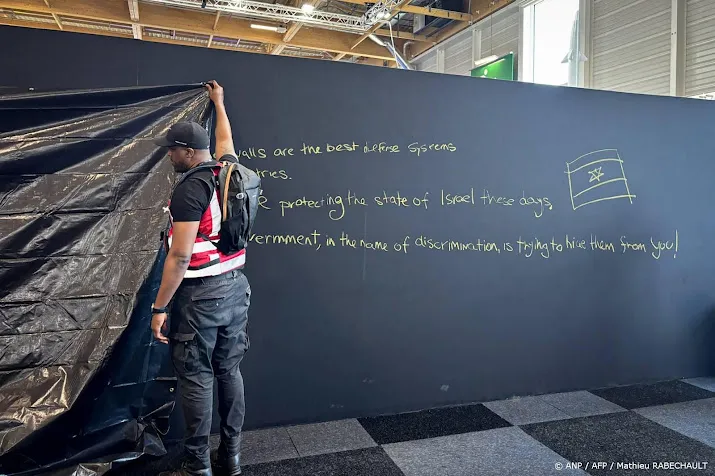 walls are the best defense systems
tries.
e protecting the state of Israel these days,
vernment, in the name of discrimination, is trying to hide them from you!
© ANP / AFP / Mathieu RABECHAULT